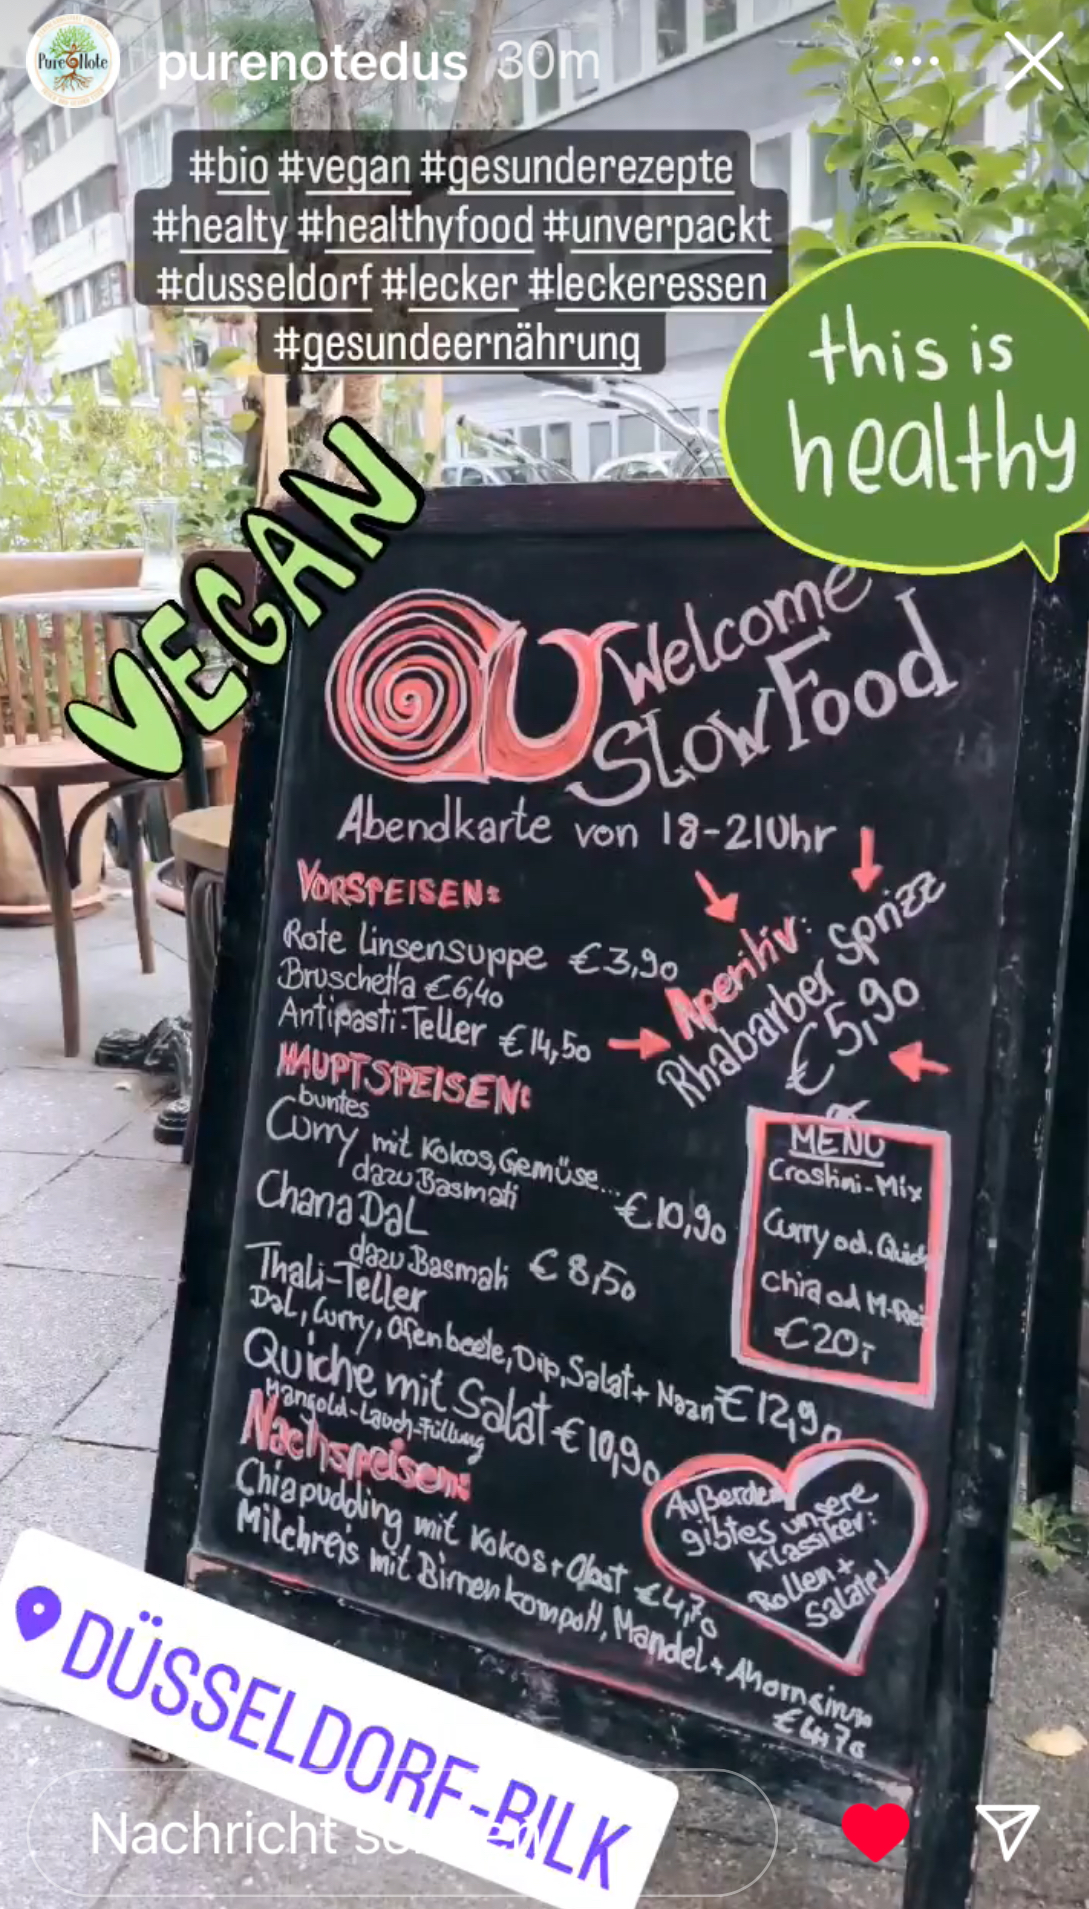 Pure Note
purenotedus 30m
#bio #vegan #gesunderezepte
#healty #healthyfood #unverpackt
#dusseldorf #lecker #leckeressen
#gesundeernährung
this is
healthy
VEGAN
Welcome
SLOWFOOD
Abendkarte von 18-21Uhr
VORSPEISEN:
Rote Linsensuppe €3,90
Bruschetta €6,40
Antipasti-Teller €14,50
Aperitiv:
Rhabarber Sprizz
€5,90
HAUPTSPEISEN:
buntes
Curry mit Kokos, Gemüse...
dazu Basmati €10,90
Chana DaL
dazu Basmati €8,50
Thali-Teller
Dal, Curry, Ofenbeete, Dip, Salat + Naan €12,90
Quiche mit Salat €10,90
Mangold-Lauch-Füllung
MENÜ
Crostini-Mix
Curry od. Quich
Chia od M-Rei
€20,-
Nachspeisen:
Chiapudding mit Kokos + Obst €4,70
Milchreis mit Birnenkompott, Mandel + Ahornsirup
€4,70
Außerdem
gibt es unsere
Klassiker:
Rollen +
Salate!
DÜSSELDORF-BILK
Nachricht